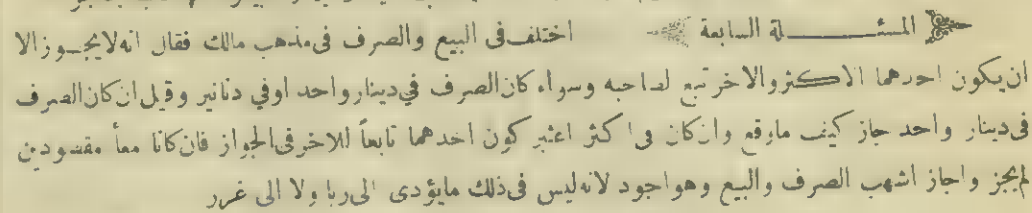 المسئلة السابعة اختلف في البيع والصرف في مذهب مالك فقال انه لا يجوز الا
ان يكون احدهما الاكثر والاخر تبع لصاحبه وسواء كان الصرف في دينار واحد او في دنانير وقيل ان كان الصرف
في دينار واحد جاز كيف ما وقع وان كان في اكثر اعتبر كون احدهما تابعاً للاخر في الجواز فان كانا معاً مقصودين
لم يجز واجاز اشهب الصرف والبيع وهو اجود لانه ليس في ذلك ما يؤدى الى ربا ولا الى غرر